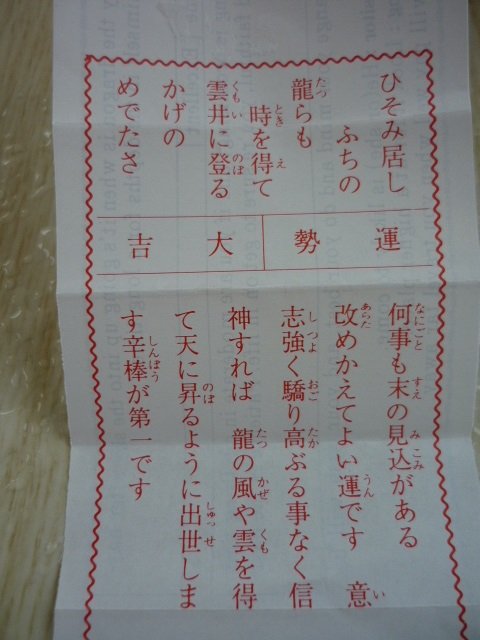 ひそみ居し
ふちの
龍らも
時を得て
雲井に登る
かげの
めでたさ
運勢
大吉
何事も末の見込がある
改めかえてよい運です　意
志強く驕り高ぶる事なく信
神すれば　龍の風や雲を得
て天に昇るように出世しま
す辛棒が第一です